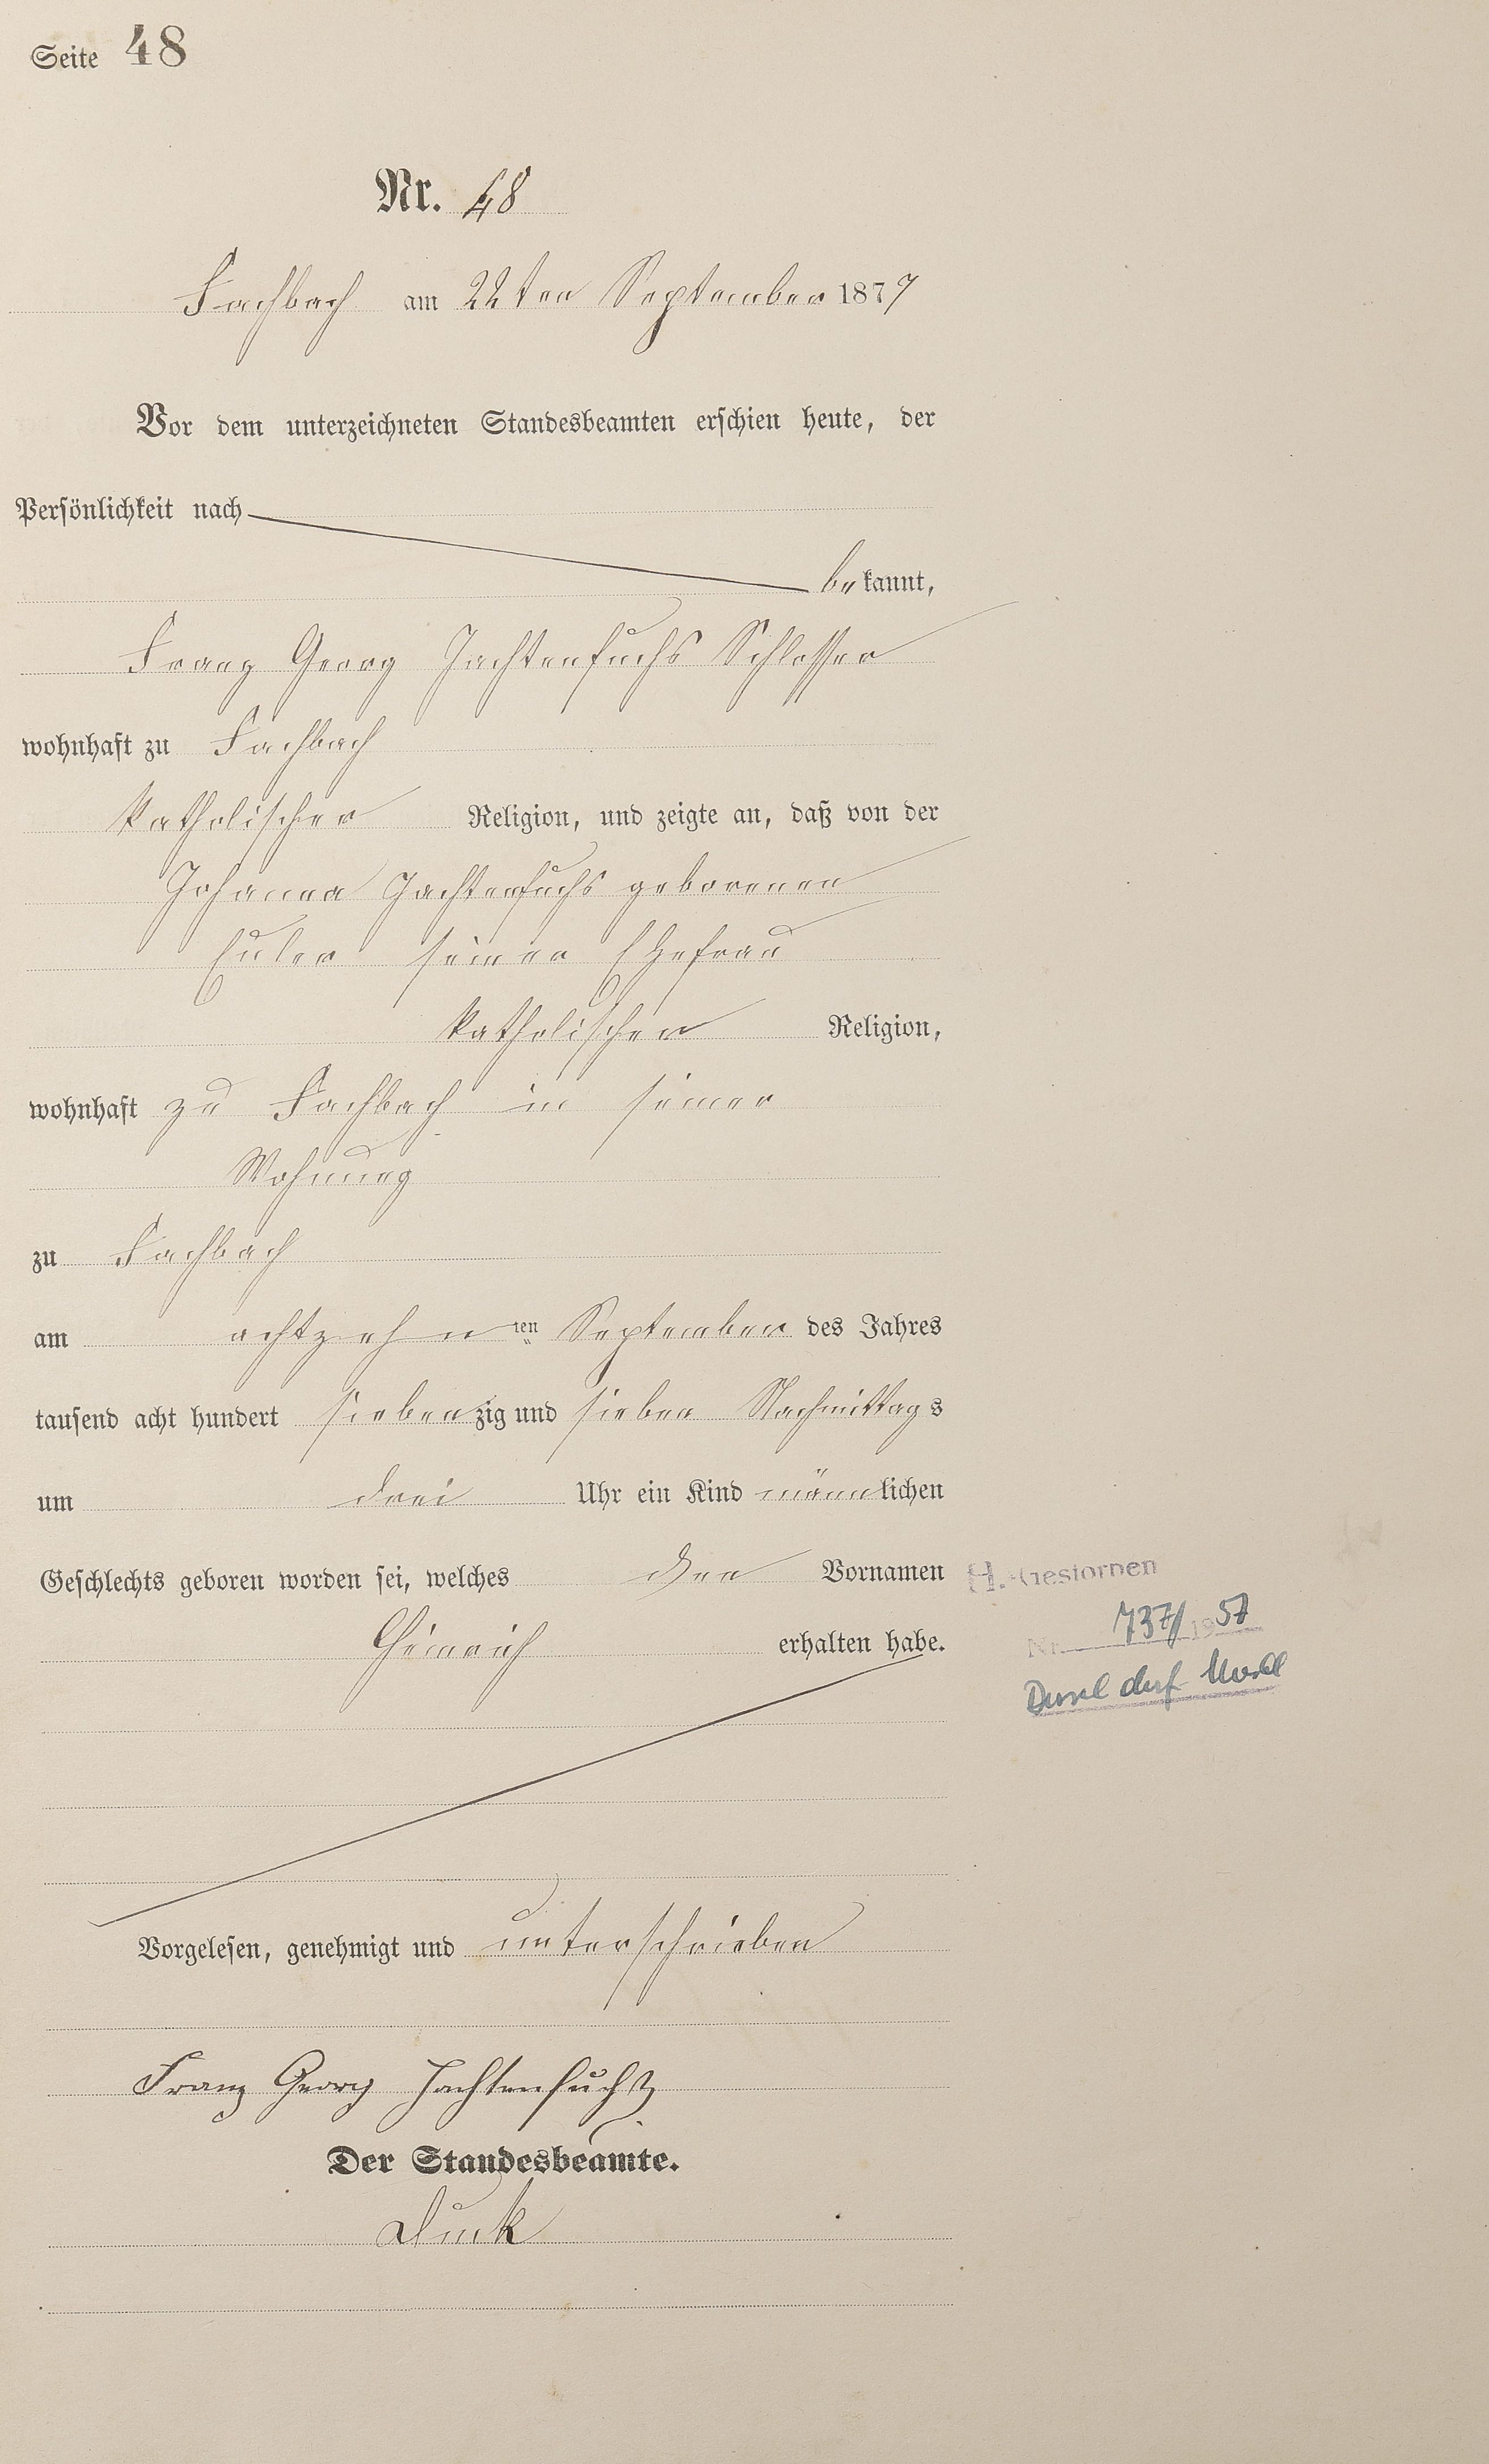 Seite 48
Nr. 48
Fachbach am 22ten September 1877
Vor dem unterzeichneten Standesbeamten erschien heute, der
Persönlichkeit nach
bekannt,
Franz Georg Jachtenfuchs Schlosser
wohnhaft zu Fachbach
katholischer Religion, und zeigte an, daß von der
Johanna Jachtenfuchs geborenen
Euler seiner Ehefrau
katholischer Religion,
wohnhaft zu Fachbach in seiner
Wohnung
zu Fachbach
am achtzehnten September des Jahres
tausend acht hundert siebenzig und sieben Nachmittags
um drei Uhr ein Kind männlichen
Geschlechts geboren worden sei, welches den Vornamen
H. Gestorben
Heinrich erhalten habe.
Nr. 737/1957
Vorgelesen, genehmigt und unterschrieben
Franz Georg Jachtenfuchs
Der Standesbeamte.